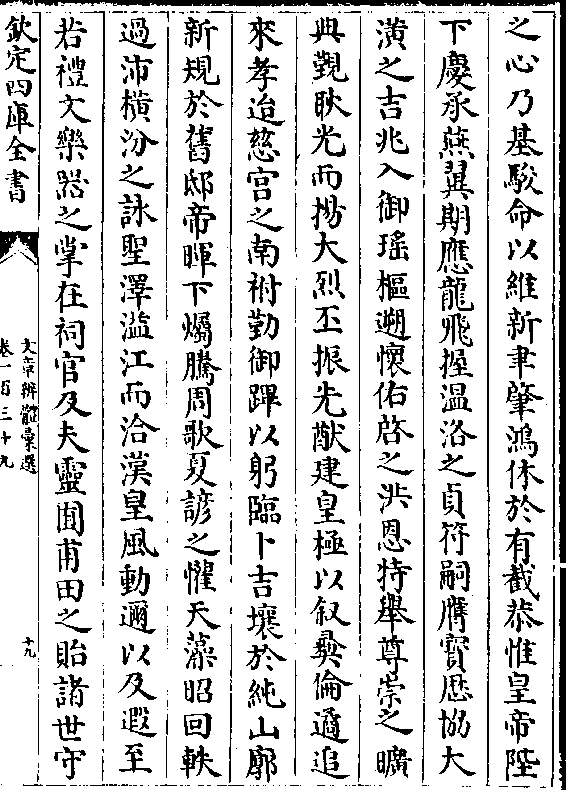 之心乃基駿命以維新聿肇鴻休於有截恭惟皇帝陛
下慶承燕翼期應龍飛握温洛之貞符嗣膺寳厯協大
潢之吉兆入御瑤樞遡懷佑啓之洪恩特舉尊崇之曠
典觀耿光而揚大烈丕振先猷建皇極以叙彝倫遹追
來孝迨慈宫之南祔勤御蹕以躬臨卜吉壤於純山廓
新規於舊邸帝暉下燭騰周歌夏諺之懽天藻昭回軼
過沛横汾之詠聖澤溢江而洽漢皇風動邇以及遐至
若禮文樂器之掌在祠官及夫靈囿甫田之貽諸世守
欽定四庫全書
文章辨體彙選
卷一百三十九
十九